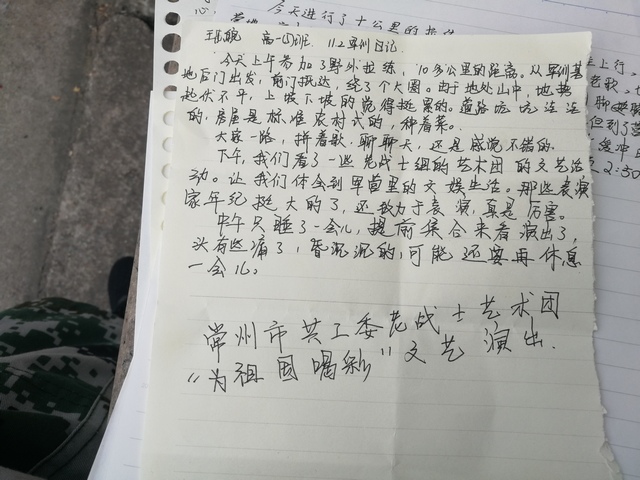 今天进行了十公里的拉练
高一(5)班. 11.2军训日记.
今天上午参加了野外拉练, 10多公里的距离。从军训基
地后门出发,前门抵达,绕了个大圈。由于地处山中,地势
起伏不平,上坡下坡的觉得挺累的。道路坑坑洼洼
的.房屋是标准农村式的,种着菜。
大家一路,拼着歌.聊聊天,还是感觉不错的.
下午,我们看了一些老战士组的艺术团的文艺活
动。让我们体会到军营里的文娱生活。那些表演
家年纪挺大的了,还致力于表演,真是厉害。
中午只睡了一会儿,提前集合来看演出了,
头有些痛了,昏沉沉的,可能还要再休息
一会儿。
常州市关工委老战士艺术团
“为祖国喝彩”文艺演出.
上行。
老歌.
但到了
2:50